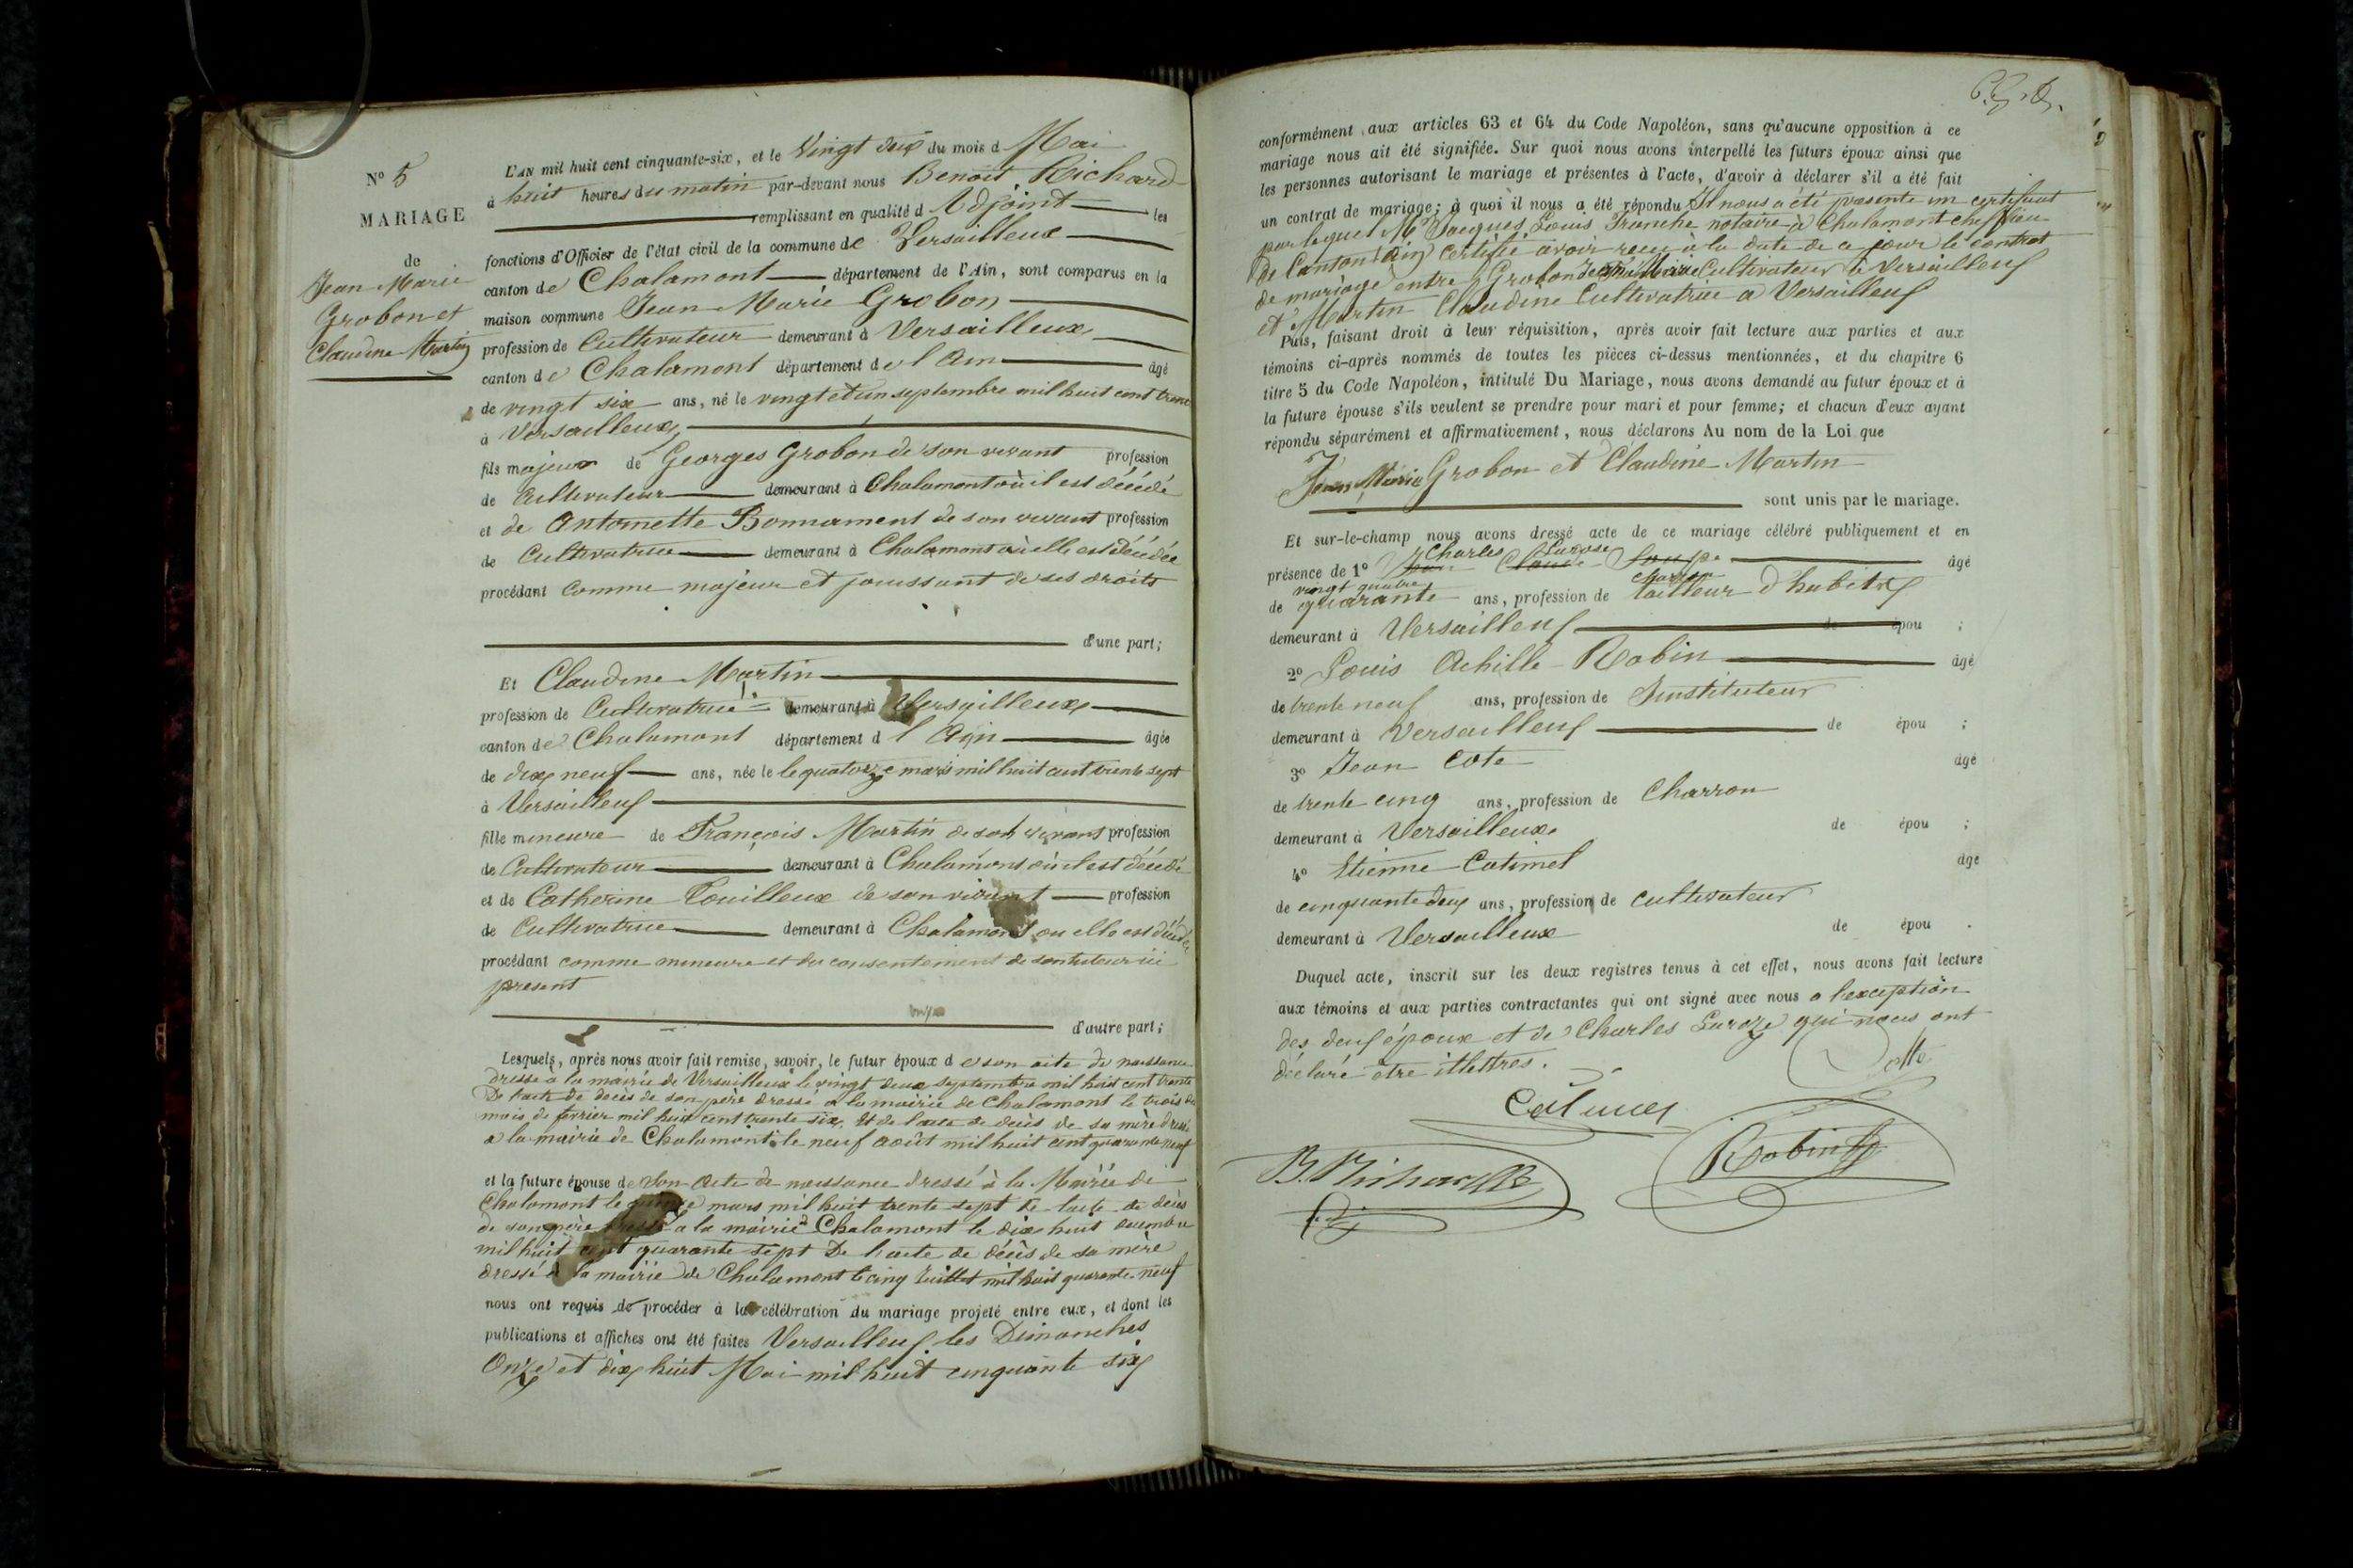 N° 5
MARIAGE
de
Jean Marie
Grobon et
Claudine Martin
L'AN mil huit cent cinquante-six, et le Vingt deux du mois d Mai
à huit heures du matin par-devant nous Benoit Richard
remplissant en qualité d Adjoint les
fonctions d'Officier de l'état civil de la commune de Versailleux
canton de Chalamont département de l'Ain, sont comparus en la
maison commune Jean Marie Grobon
profession de Cultivateur demeurant à Versailleux
canton de Chalamont département de l Ain âgé
de vingt six ans, né le vingt et un septembre mil huit cent trente
à Versailleux
fils majeur de Georges Grobon de son vivant profession
de Cultivateur demeurant à Chalamont où il est décédé
et de Antoinette Bonnament de son vivant profession
de Cultivatrice demeurant à Chalamont où elle est décédée
procédant comme majeur et jouissant de ses droits
d'une part;
Et Claudine Martin
profession de Cultivatrice demeurant à Versailleux
canton de Chalamont département d l Ain âgée
de dix neuf ans, née le le quatorze mars mil huit cent trente sept
à Versailleux
fille mineure de François Martin de son vivant profession
de Cultivateur demeurant à Chalamont où il est décédé
et de Catherine Touilleux de son vivant profession
de Cultivatrice demeurant à Chalamont ou elle est décédée
procédant comme mineure et du consentement de son tuteur ici
présent
d'autre part;
Lesquels, après nous avoir fait remise, savoir, le futur époux d e son acte de naissance
dressé à la mairie de Versailleux le vingt deux septembre mil huit cent trente
De l'acte de décès de son père dressé à la mairie de Chalamont le trois du
mois de février mil huit cent trente six, Et de l'acte de décès de sa mère dressé
a la mairie de Chalamont le neuf août mil huit cent quarante neuf
et la future épouse de Son Acte de naissance dressé à la Mairie de
Chalamont le mars mil huit trente sept De l'acte de décès
de son père dressé a la mairie Chalamont le dix huit décembre
mil huit cent quarante sept De l'acte de décès de sa mère
dressé à la mairie de Chalamont le cinq Juillet mil huit quarante neuf
nous ont requis de procéder à la célébration du mariage projeté entre eux, et dont les
publications et affiches ont été faites Versailleux les Dimanches
Onze et dix huit Mai mil huit cinquante six
conformément aux articles 63 et 64 du Code Napoléon, sans qu'aucune opposition à ce
mariage nous ait été signifiée. Sur quoi nous avons interpellé les futurs époux ainsi que
les personnes autorisant le mariage et présentes à l'acte, d'avoir à déclarer s'il a été fait
un contrat de mariage; à quoi il nous a été répondu Il nous a été présenté un certificat
par lequel Me Jacques Louis Tranche notaire à Chalamont chef lieu
de Canton (Ain) certifie avoir reçu à la date de ce jour le contrat
de mariage entre Grobon Jean Marie Cultivateur à Versailleux
et Martin Claudine Cultivatrice a Versailleux
Puis, faisant droit à leur réquisition, après avoir fait lecture aux parties et aux
témoins ci-après nommés de toutes les pièces ci-dessus mentionnées, et du chapitre 6
titre 5 du Code Napoléon, intitulé Du Mariage, nous avons demandé au futur époux et à
la future épouse s'ils veulent se prendre pour mari et pour femme; et chacun d'eux ayant
répondu séparément et affirmativement, nous déclarons Au nom de la Loi que
Jean Marie Grobon et Claudine Martin
sont unis par le mariage.
Et sur-le-champ nous avons dressé acte de ce mariage célébré publiquement et en
Charles
présence de 1° Claude âgé
vingt quatre charron
de quarante ans, profession de tailleur d'habits
demeurant à Versailleux de épou ;
2° Louis Achille Robin âgé
de trente neuf ans, profession de Instituteur
demeurant à Versailleux de épou ;
3° Jean Cote âgé
de trente cinq ans, profession de Charron
demeurant à Versailleux de épou ;
4° Etienne Catimel âgé
de cinquante deux ans, profession de cultivateur
demeurant à Versailleux de épou .
Duquel acte, inscrit sur les deux registres tenus à cet effet, nous avons fait lecture
aux témoins et aux parties contractantes qui ont signé avec nous a l'exception
des deux époux et de Charles Laroze qui nous ont
déclaré être illettrés.
Cotte
Catimel
B. Richard
Robin